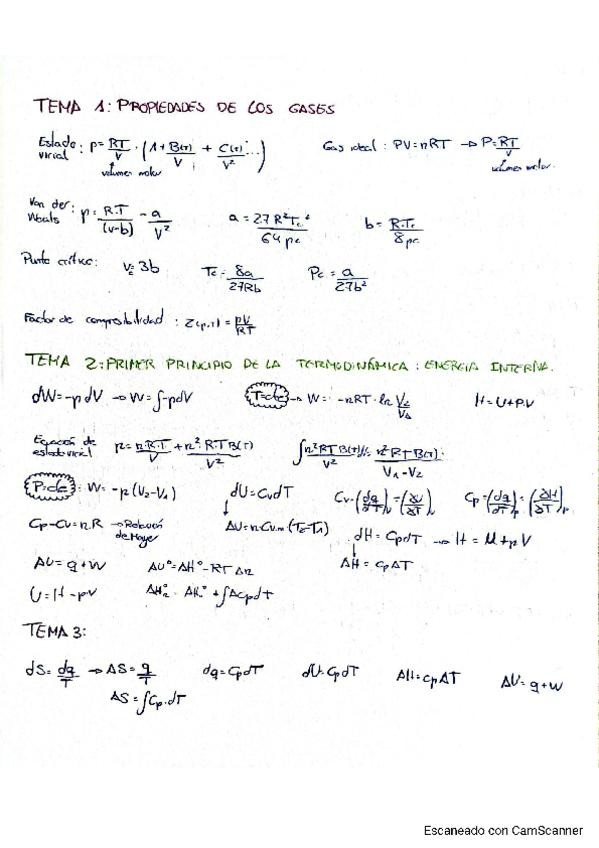 TEMA 1: PROPIEDADES DE LOS GASES
Estado virial: p = RT/V · (1 + B(T)/V + C(T)/V² ...) Gas ideal: PV = nRT → P = RT/V
volumen molar volumen molar
Van der Waals: p = R.T/(V-b) - a/V² a = 27 R² Tc²/64 pc b = R.Tc/8pc
Punto crítico: Vc = 3b Tc = 8a/27Rb Pc = a/27b²
Factor de compresibilidad: Z(p,T) = pV/RT
TEMA 2: PRIMER PRINCIPIO DE LA TERMODINÁMICA: ENERGIA INTERNA.
dW = -p dV → W = ∫-pdV T=cte → W = -nRT · ln V₂/V₁ H = U + PV
Ecuación de estado virial p = n.R.T./V + n² R.T B(T)/V² ∫ n² RT B(T)/V² = n² RT B(T)/V₁-V₂
P=cte: W = -p (V₂-V₁) dU = CvdT Cv = (dq/dT)v = (∂U/∂T)v Cp = (dq/dT)p = (∂H/∂T)p
Cp - Cv = nR → Relación de Mayer ΔU = nCv,m (T₂-T₁) dH = CpdT → H = U + pV
ΔU = q + w ΔU° = ΔH° - RT Δn ΔH = CpΔT
U = H - pV + ∫ΔCpdT
TEMA 3:
dS = dq/T → ΔS = q/T dq = CpdT dU = CpdT ΔH = CpΔT ΔU = q + w
ΔS = ∫Cp.dT
Escaneado con CamScanner